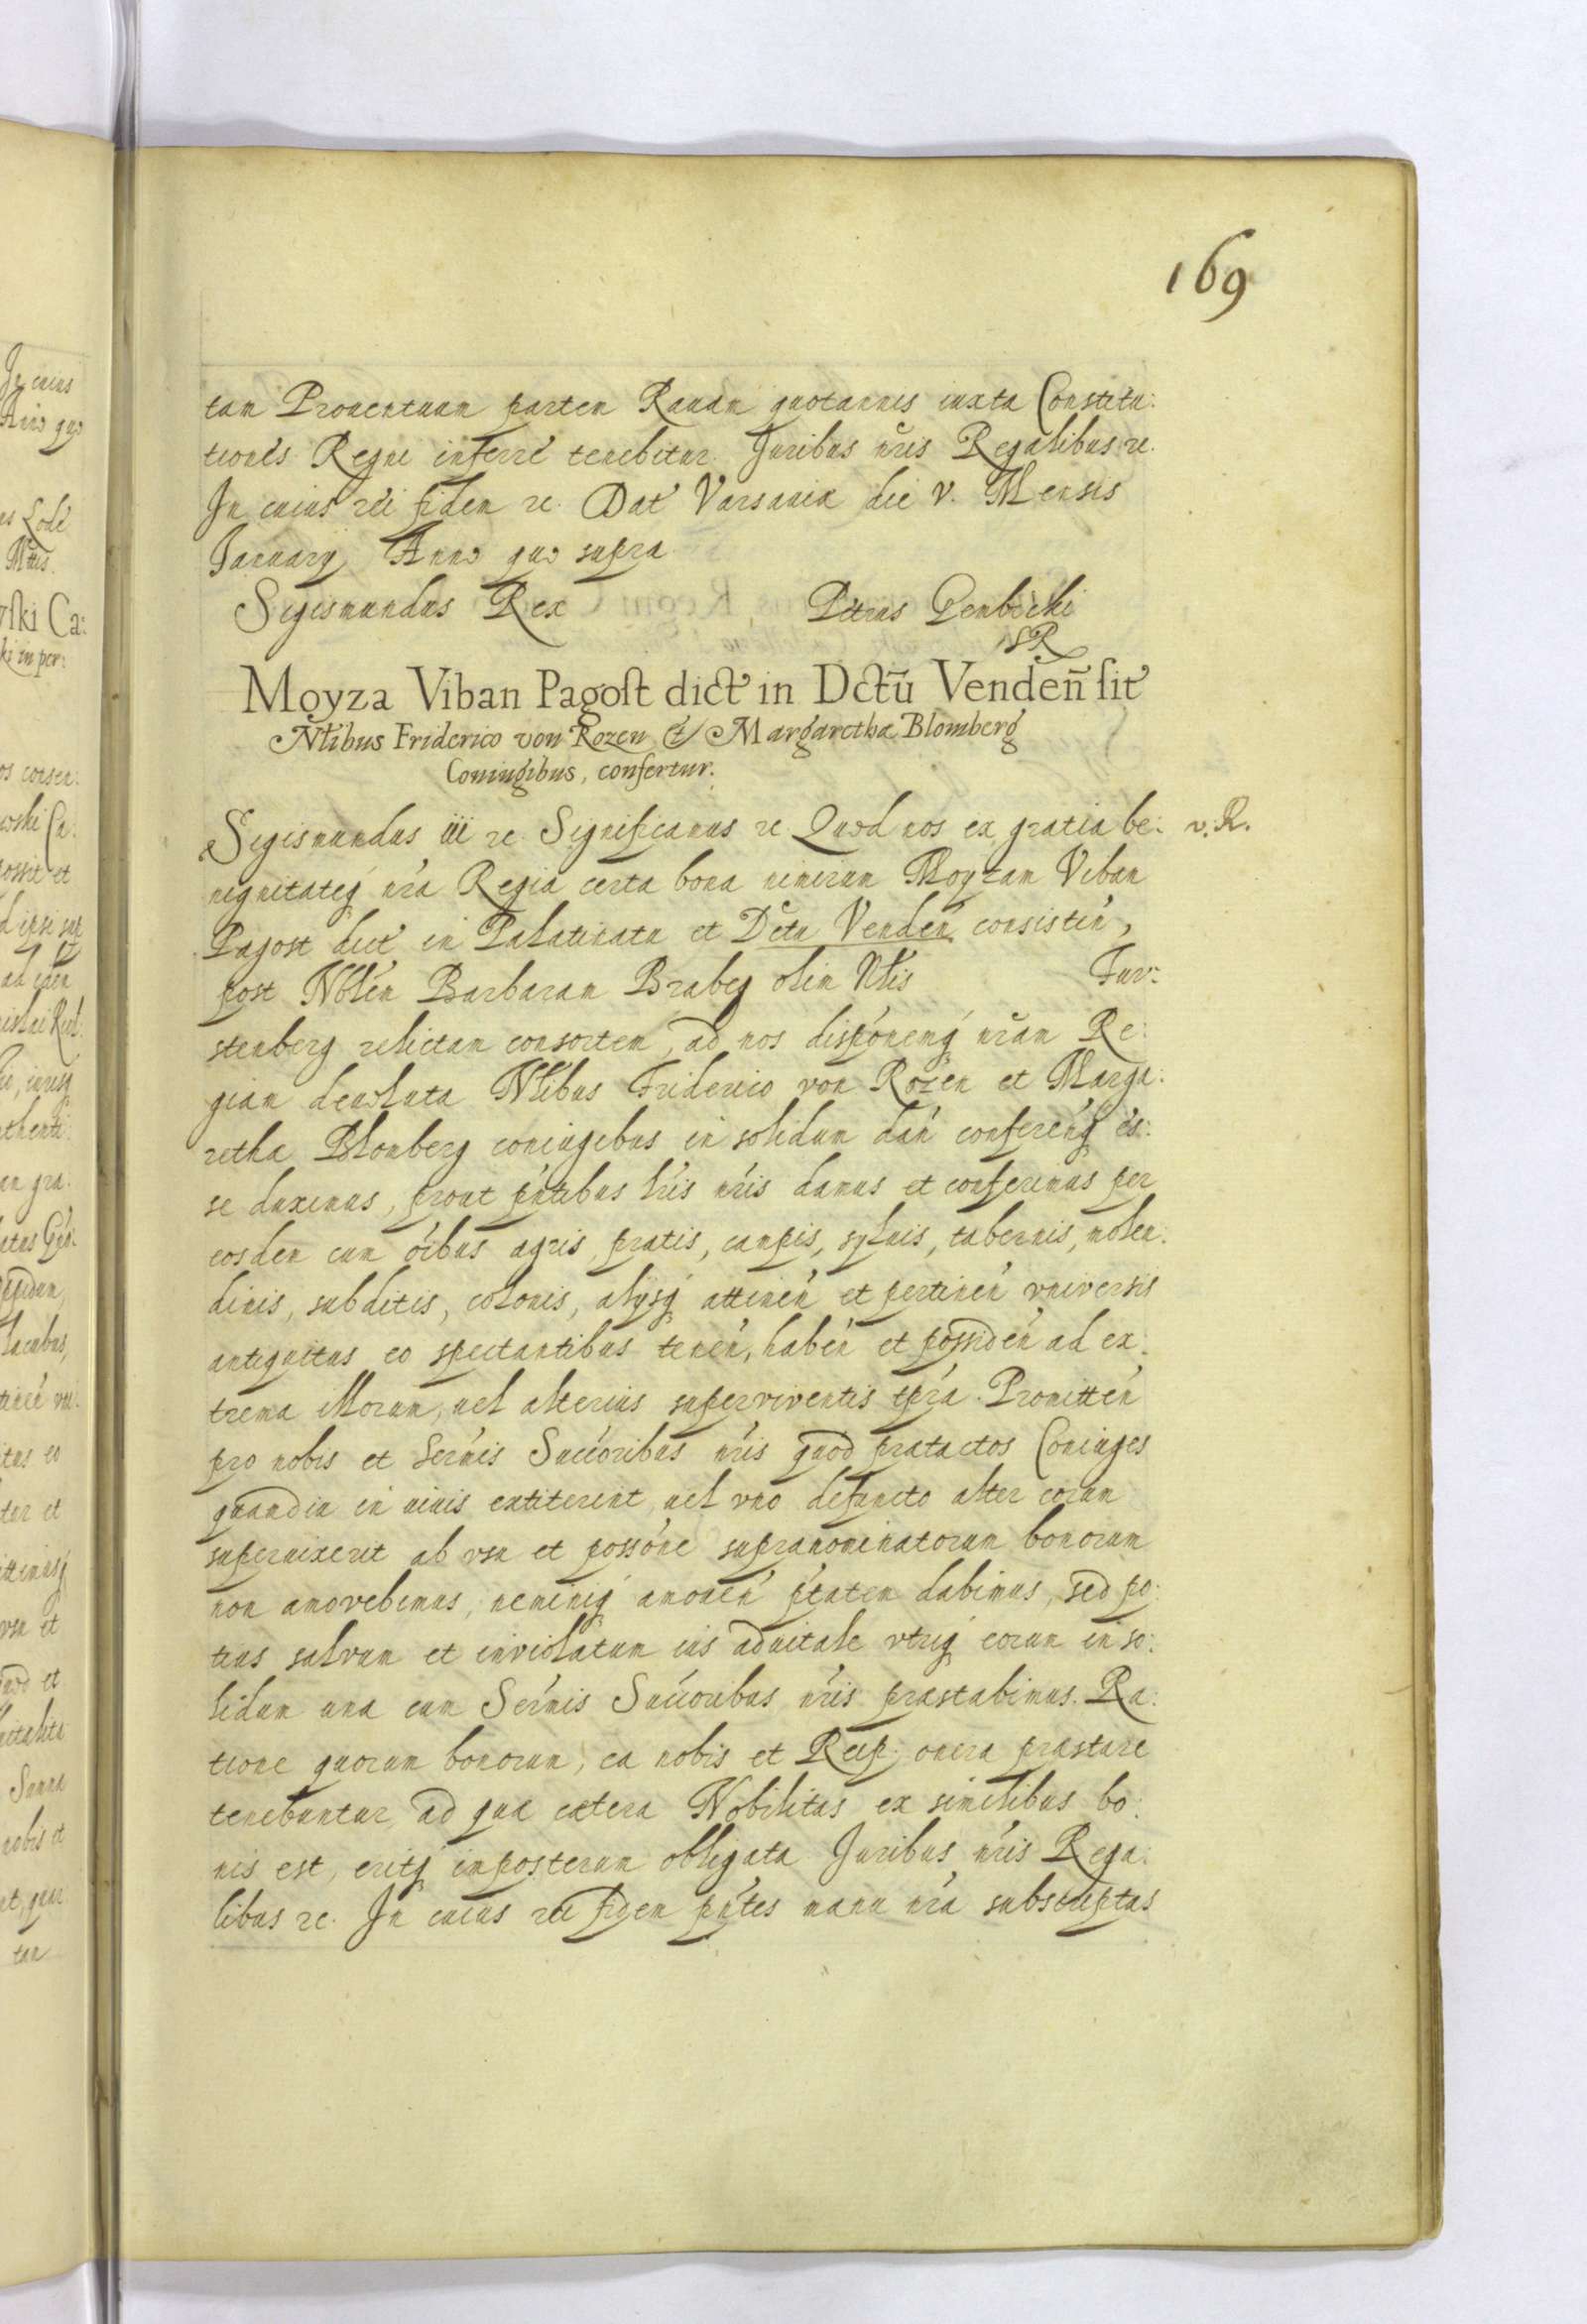 169
tam Prouentuum partem Rauam quotannis iuxta Constitu:
tiones Regni inferre tenebitur. Juribus nr̃is Regalibus rc.
In cuius rei fidem rc. Dat' Varsauiæ die V. Mensis
Januarij Anno quo supra
Sigismundus Rex Petrus Gembicki
SR
Moyza Viban Pagost dict' in Dctũ Venden̄ sit'
Nłibus Friderico von Rozen & Margarethæ Blomberg
Coniugibus, confertur.
Sigismundus iii rc. Significamus rc. Quod nos ex gratia be: v. R.
nignitateq́ nr̃a Regia certa bona nimirum Moyzam Viban
Pagost dict' in Palatinatu et Dctu Venden̄ consisten̄,
post Nblem Barbaram Brabeg olim Nłis Fur:
stenberg relictam consortem, ad nos dispónemq́ nr̃am Re:
giam deuoluta Nłibus Friderico von Rozen et Marga:
rethæ Blomberg coniugibus in solidum dan̄ conferen̄q́ es:
se duximus, prout pñtibus lr̃is nr̃is damus et conferimus per
eosdem cum óibus agris, pratis, campis, syluis, tabernis, molen:
dinis, subditis, colonis, alijsq́ attinen̄ et pertinen̄ vniversis
antiquitus eo spectantibus tenen̄, haben̄ et possiden̄ ad ex:
trema illorum, uel alterius superviventis tp̃ra. Promitten̄
pro nobis et Sermis Succóribus nr̃is quod prætactos Coniuges
quamdiu in uiuis extiterint, uel vno defuncto alter eorum
superuixerit ab vsu et possóne supranominatorum bonorum
non amovebimus, neminiq́ amouen̄ p̃tatem dabimus, sed po:
tius salvum et inviolatum ius aduitale vtriq́ eorum in so:
lidum una cum Sermis Succoribus nr̃is præstabimus. Ra:
tione quorum bonorum, ea nobis et Reip: onera præstare
tenebuntur, ad quæ cætera Nobilitas ex similibus bo:
nis est, eritq́ imposterum obligata Juribus nr̃is Rega:
libus rc. In cuius rei fidem pñtes manu nr̃a subscriptas